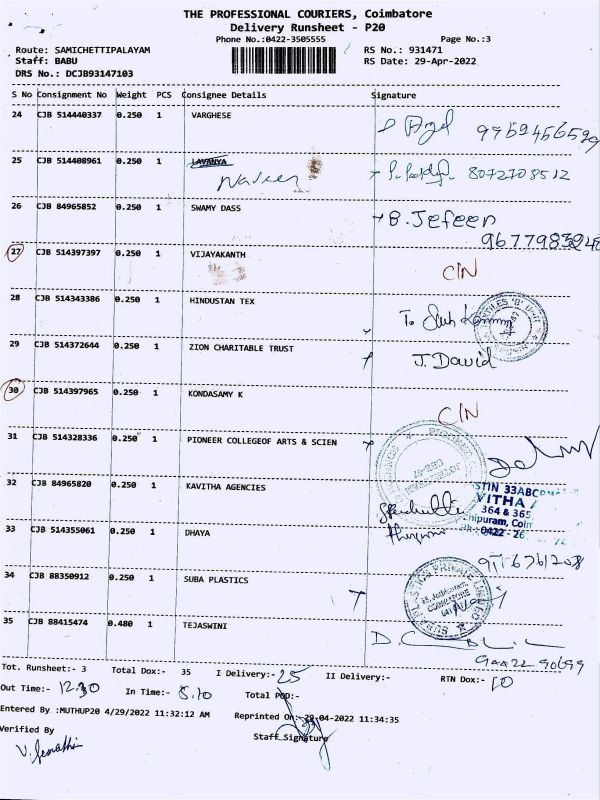 THE PROFESSIONAL COURIERS, Coimbatore
Delivery Runsheet - P20
Phone No.:0422-3505555 Page No.:3
Route: SAMICHETTIPALAYAM RS No.: 931471
Staff: BABU RS Date: 29-Apr-2022
DRS No.: DCJB93147103
S No Consignment No Weight PCS Consignee Details Signature
24 CJB 514440337 0.250 1 VARGHESE
25 CJB 514408961 0.250 1 LAVANYA 8072708512
Naveen
26 CJB 84965852 0.250 1 SWAMY DASS B. Jefeen
27 CJB 514397397 0.250 1 VIJAYAKANTH CIN
28 CJB 514343386 0.250 1 HINDUSTAN TEX
29 CJB 514372644 0.250 1 ZION CHARITABLE TRUST J. David
30 CJB 514397965 0.250 1 KONDASAMY K CIN
31 CJB 514328336 0.250 1 PIONEER COLLEGEOF ARTS & SCIEN
32 CJB 84965820 0.250 1 KAVITHA AGENCIES
STIN 33ABC
VITHA
364 & 365
33 CJB 514355061 0.250 1 DHAYA
34 CJB 88350912 0.250 1 SUBA PLASTICS
COIMBATORE
35 CJB 88415474 0.480 1 TEJASWINI
Tot. Runsheet:- 3 Total Dox:- 35 I Delivery:- 25 II Delivery:- RTN Dox:- 10
Out Time:- 12.30 In Time:- 5.10 Total POD:-
Entered By :MUTHUP20 4/29/2022 11:32:12 AM Reprinted On: 29-04-2022 11:34:35
Verified By Staff Signature